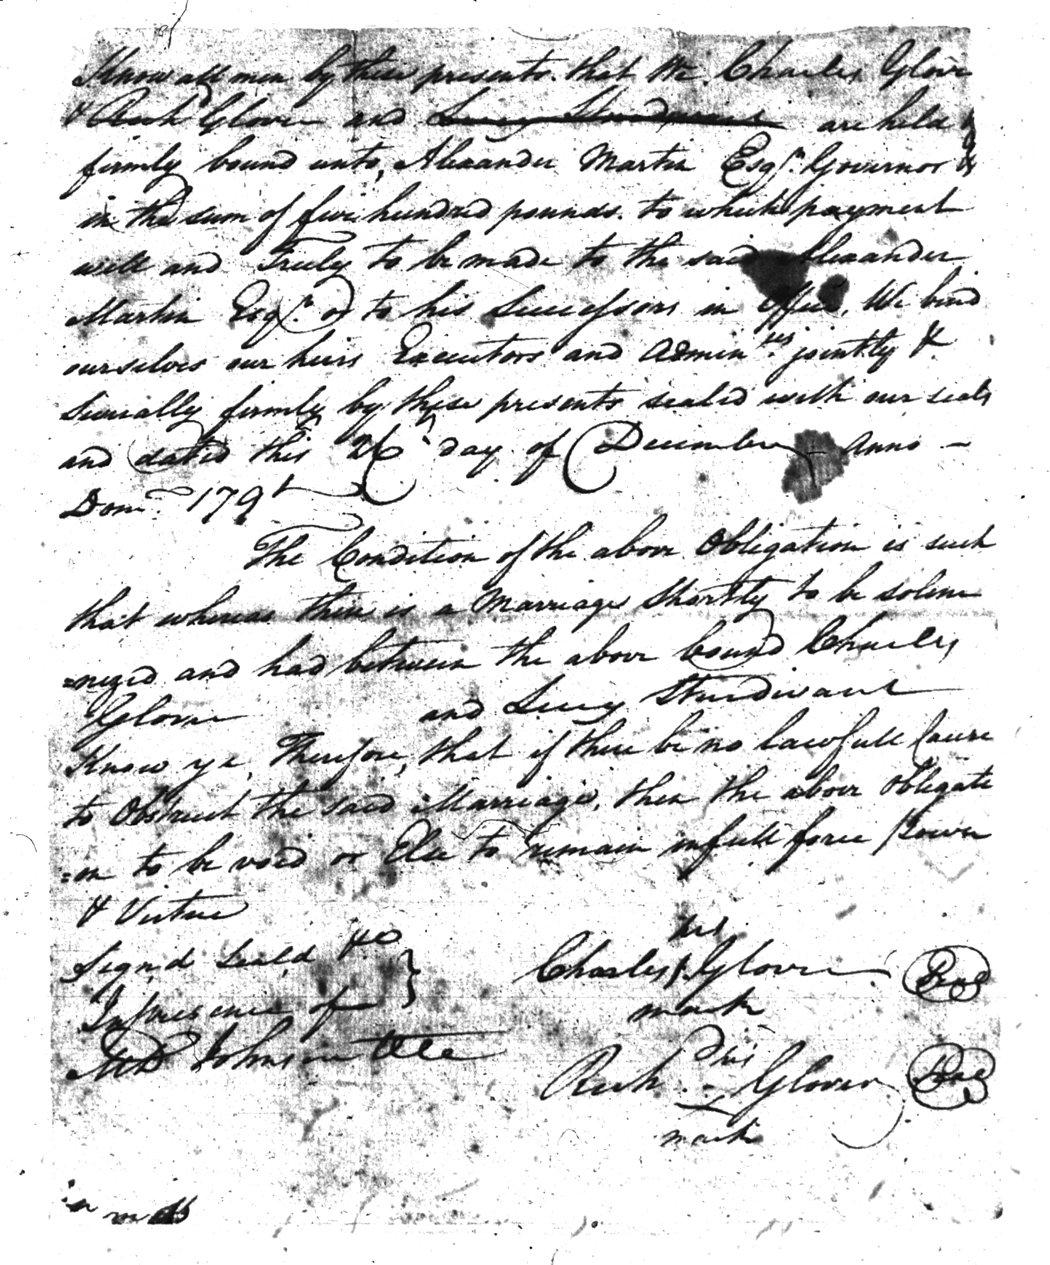 Know all men by these presents that We Charles Glover
& Rich Glover and Lucy Sturdivant are held &
firmly bound unto, Alexander Martin Esqr. Governor &
in the sum of five hundred pounds. to which payment
well and Truly to be made to the said Alexander
Martin Esqr. or to his Successors in Office, We bind
ourselves our heirs Executors and Adminrs jointly &
Severally firmly by these presents sealed with our seals
and dated this day of December Anno -
Dom. 1791
The Condition of the above Obligation is such
that whereas there is a Marriage Shortly to be solem
=nized and had between the above bound Charles
Glover and Lucy Sturdivant
Know ye, Therefore, that if there be no lawfull Cause
to Obstruct the said Marriage, then the above Obligati
=on to be void or Else to remain in full force Power
& Virtue
Signd Seald &c
In presence of
Johnson
his
Charles Glover
mark
his
Rich Glover
mark